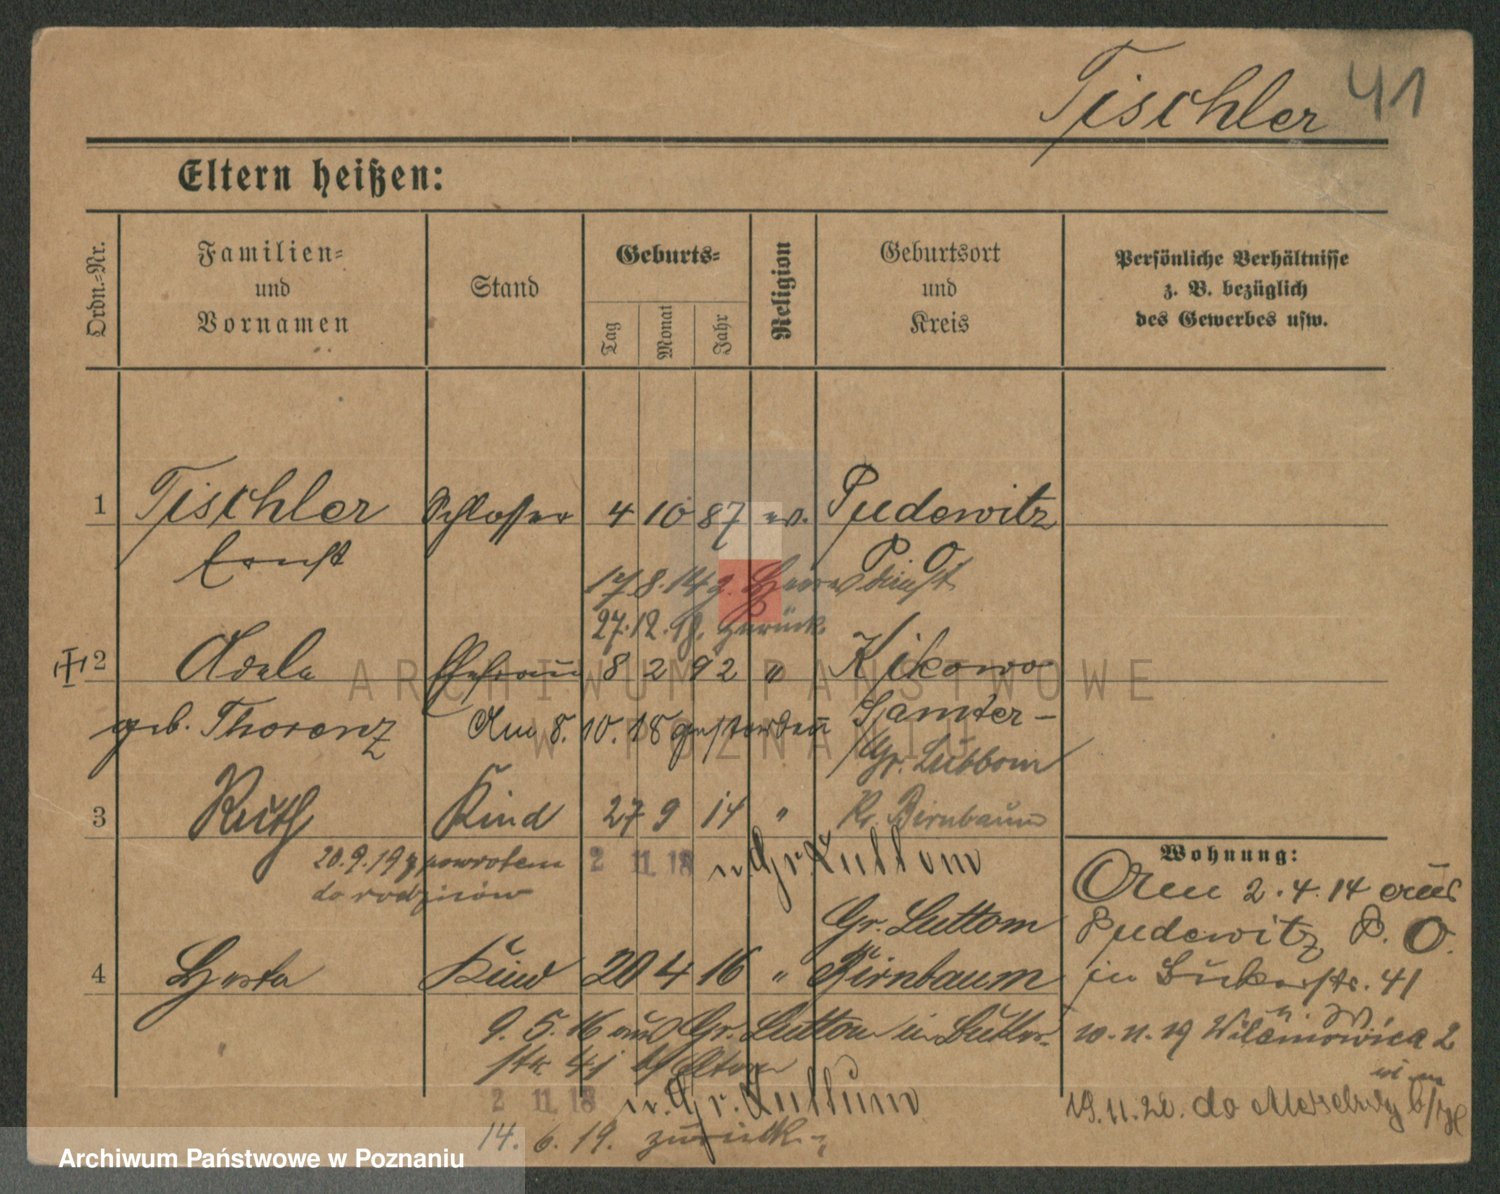 Tischler 41
Eltern heißen:
Ordn.-Nr.
Familien-
und
Vornamen
Stand
Geburts-
Tag
Monat
Jahr
Religion
Geburtsort
und
Kreis
Persönliche Verhältnisse
z. B. bezüglich
des Gewerbes usw.
1 Tischler Schlosser 4 10 87 ev. Pudewitz
Ernst P. O.
17.8.14 z. Heeresdienst
27.12.18. zurück
2 Adele Ehefrau 8 2 92 " Kikowo
geb. Thorenz Am 8.10.18 gestorben Samter-
Gr. Luttom
3 Ruth Kind 27 9 14 " Kr. Birnbaum
20.9.19 z powrotem 2 11 18 n. Gr. Luttom
do rodziców
Gr. Luttom
4 Herta Kind 20 4 16 " Birnbaum
9.5.16 aus Gr. Luttom in
str. 41 Eltern
2 11 18 n. Gr. Luttum
14. 6. 19. zurück
Wohnung:
Am 2.4.14 aus
Pudewitz P. O.
in 41
10.11.19 2
19.11.20. do
ARCHIWUM PAŃSTWOWE
W POZNANIU
Archiwum Państwowe w Poznaniu